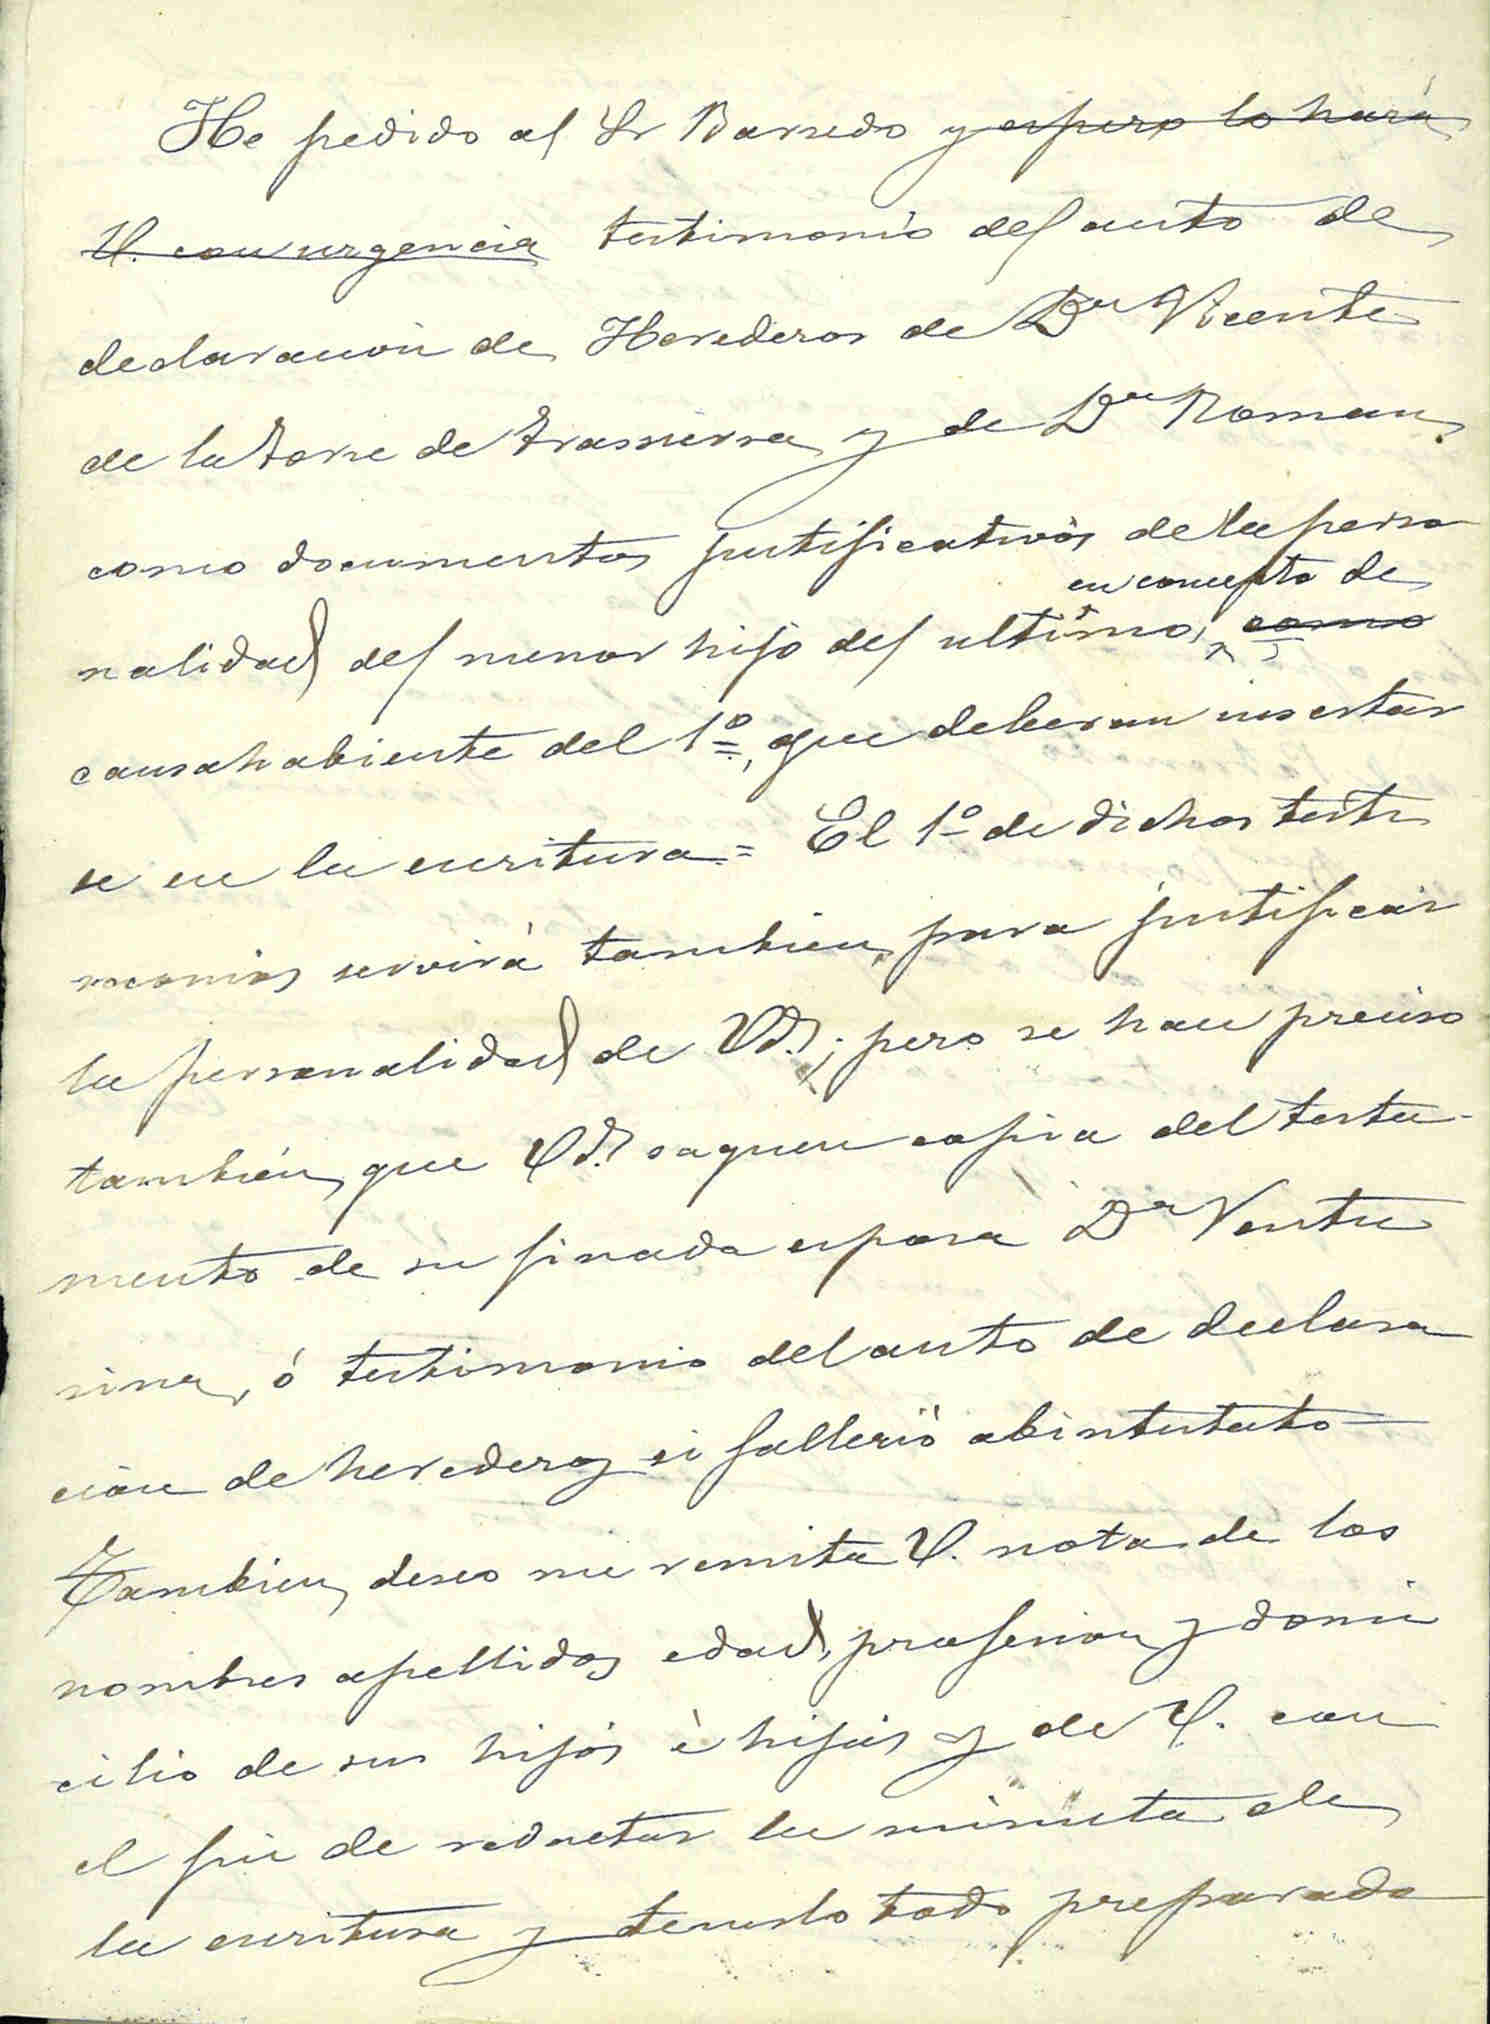 He pedido al Sr Barredo y espero lo hará
V. con urgencia testimonio del auto de
declaracion de Herederos de Dn Vicente
de la Torre de Trassierra y de Dn Roman,
como documentos justificativos de la perso
en concepto de
nalidad del menor hijo del ultimo, como
causahabiente del 1º, que deberan insertar
se en la escritura = El 1º de dichos testi
monios servirá tambien para justificar
la personalidad de Vds; pero se hace preciso
también que Vds saquen copia del testa-
mento de su finada esposa Da Ventu
rina, ó testimonio del auto de declara
cion de herederos si falleció abintestato
Tambien deseo me remita V. nota de los
nombres apellidos edad, profesion y domi
cilio de sus hijos é hijas y de V. con
el fin de redactar la minuta de
la escritura y tenerlo todo preparado